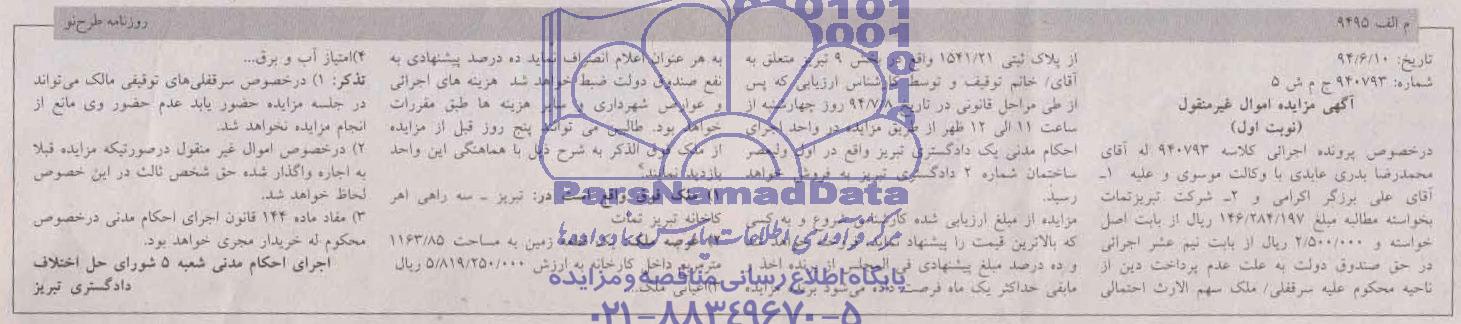 م الف ۹۴۹۵
روزنامه طرح‌نو
تاریخ: ۹۴/۶/۱۰
شماره: ۹۴۰۷۹۳ ج م ش ۵
آگهی مزایده اموال غیرمنقول
(نوبت اول)
درخصوص پرونده اجرائی کلاسه ۹۴۰۷۹۳ له آقای
محمدرضا بدری عابدی با وکالت موسوی و علیه ۱ـ
آقای علی برزگر اکرامی و ۲ـ شرکت تبریزتمات
بخواسته مطالبه مبلغ ۱۴۶/۲۸۴/۱۹۷ ریال از بابت اصل
خواسته و ۲/۵۰۰/۰۰۰ ریال از بابت نیم عشر اجرائی
در حق صندوق دولت به علت عدم پرداخت دین از
ناحیه محکوم علیه سرقفلی/ ملک سهم الارث احتمالی
از پلاک ثبتی ۱۵۴۱/۲۱ واقع در بخش ۹ تبریز متعلق به
آقای/ خانم توقیف و توسط کارشناس ارزیابی که پس
از طی مراحل قانونی در تاریخ ۹۴/۷/۸ روز چهارشنبه از
ساعت ۱۱ الی ۱۲ ظهر از طریق مزایده در واحد اجرای
احکام مدنی یک دادگستری تبریز واقع در اول ولیعصر
ساختمان شماره ۲ دادگستری تبریز به فروش خواهد
رسید.
مزایده از مبلغ ارزیابی شده کارشناس شروع و به کسی
که بالاترین قیمت را پیشنهاد نماید
و ده درصد مبلغ پیشنهادی فی المجلس از برنده اخذ
مابقی حداکثر یک ماه فرصت داده می‌شود برنده مزایده
به هر عنوان اعلام انصراف نماید ده درصد پیشنهادی به
نفع صندوق دولت ضبط خواهد شد هزینه های اجرائی
و عوارض شهرداری و سایر هزینه ها طبق مقررات
خواهد بود. طالبین می توانند پنج روز قبل از مزایده
از ملک فوق الذکر به شرح ذیل با هماهنگی این واحد
بازدید نمایند؟
۱) ملک فوق واقع است در: تبریز ـ سه راهی اهر
کاخانه تبریز تمات
۲) عرصه ملک: یک قطعه زمین به مساحت ۱۱۶۳/۸۵
مترمربع داخل کارخانه به ارزش ۵/۸۱۹/۲۵۰/۰۰۰ ریال
۳) اعیانی ملک...
۴)امتیاز آب و برق...
تذکر: ۱) درخصوص سرقفلی‌های توقیفی مالک می‌تواند
در جلسه مزایده حضور یابد عدم حضور وی مانع از
انجام مزایده نخواهد شد.
۲) درخصوص اموال غیر منقول درصورتیکه مزایده قبلا
به اجاره واگذار شده حق شخص ثالث در این خصوص
لحاظ خواهد شد.
۳) مفاد ماده ۱۴۴ قانون اجرای احکام مدنی درخصوص
محکوم له خریدار مجری خواهد بود.
اجرای احکام مدنی شعبه ۵ شورای حل اختلاف
دادگستری تبریز
ParsNamadData
پایگاه اطلاع رسانی مناقصه و مزایده
۰۲۱-۸۸۳۴۹۶۷۰-۵